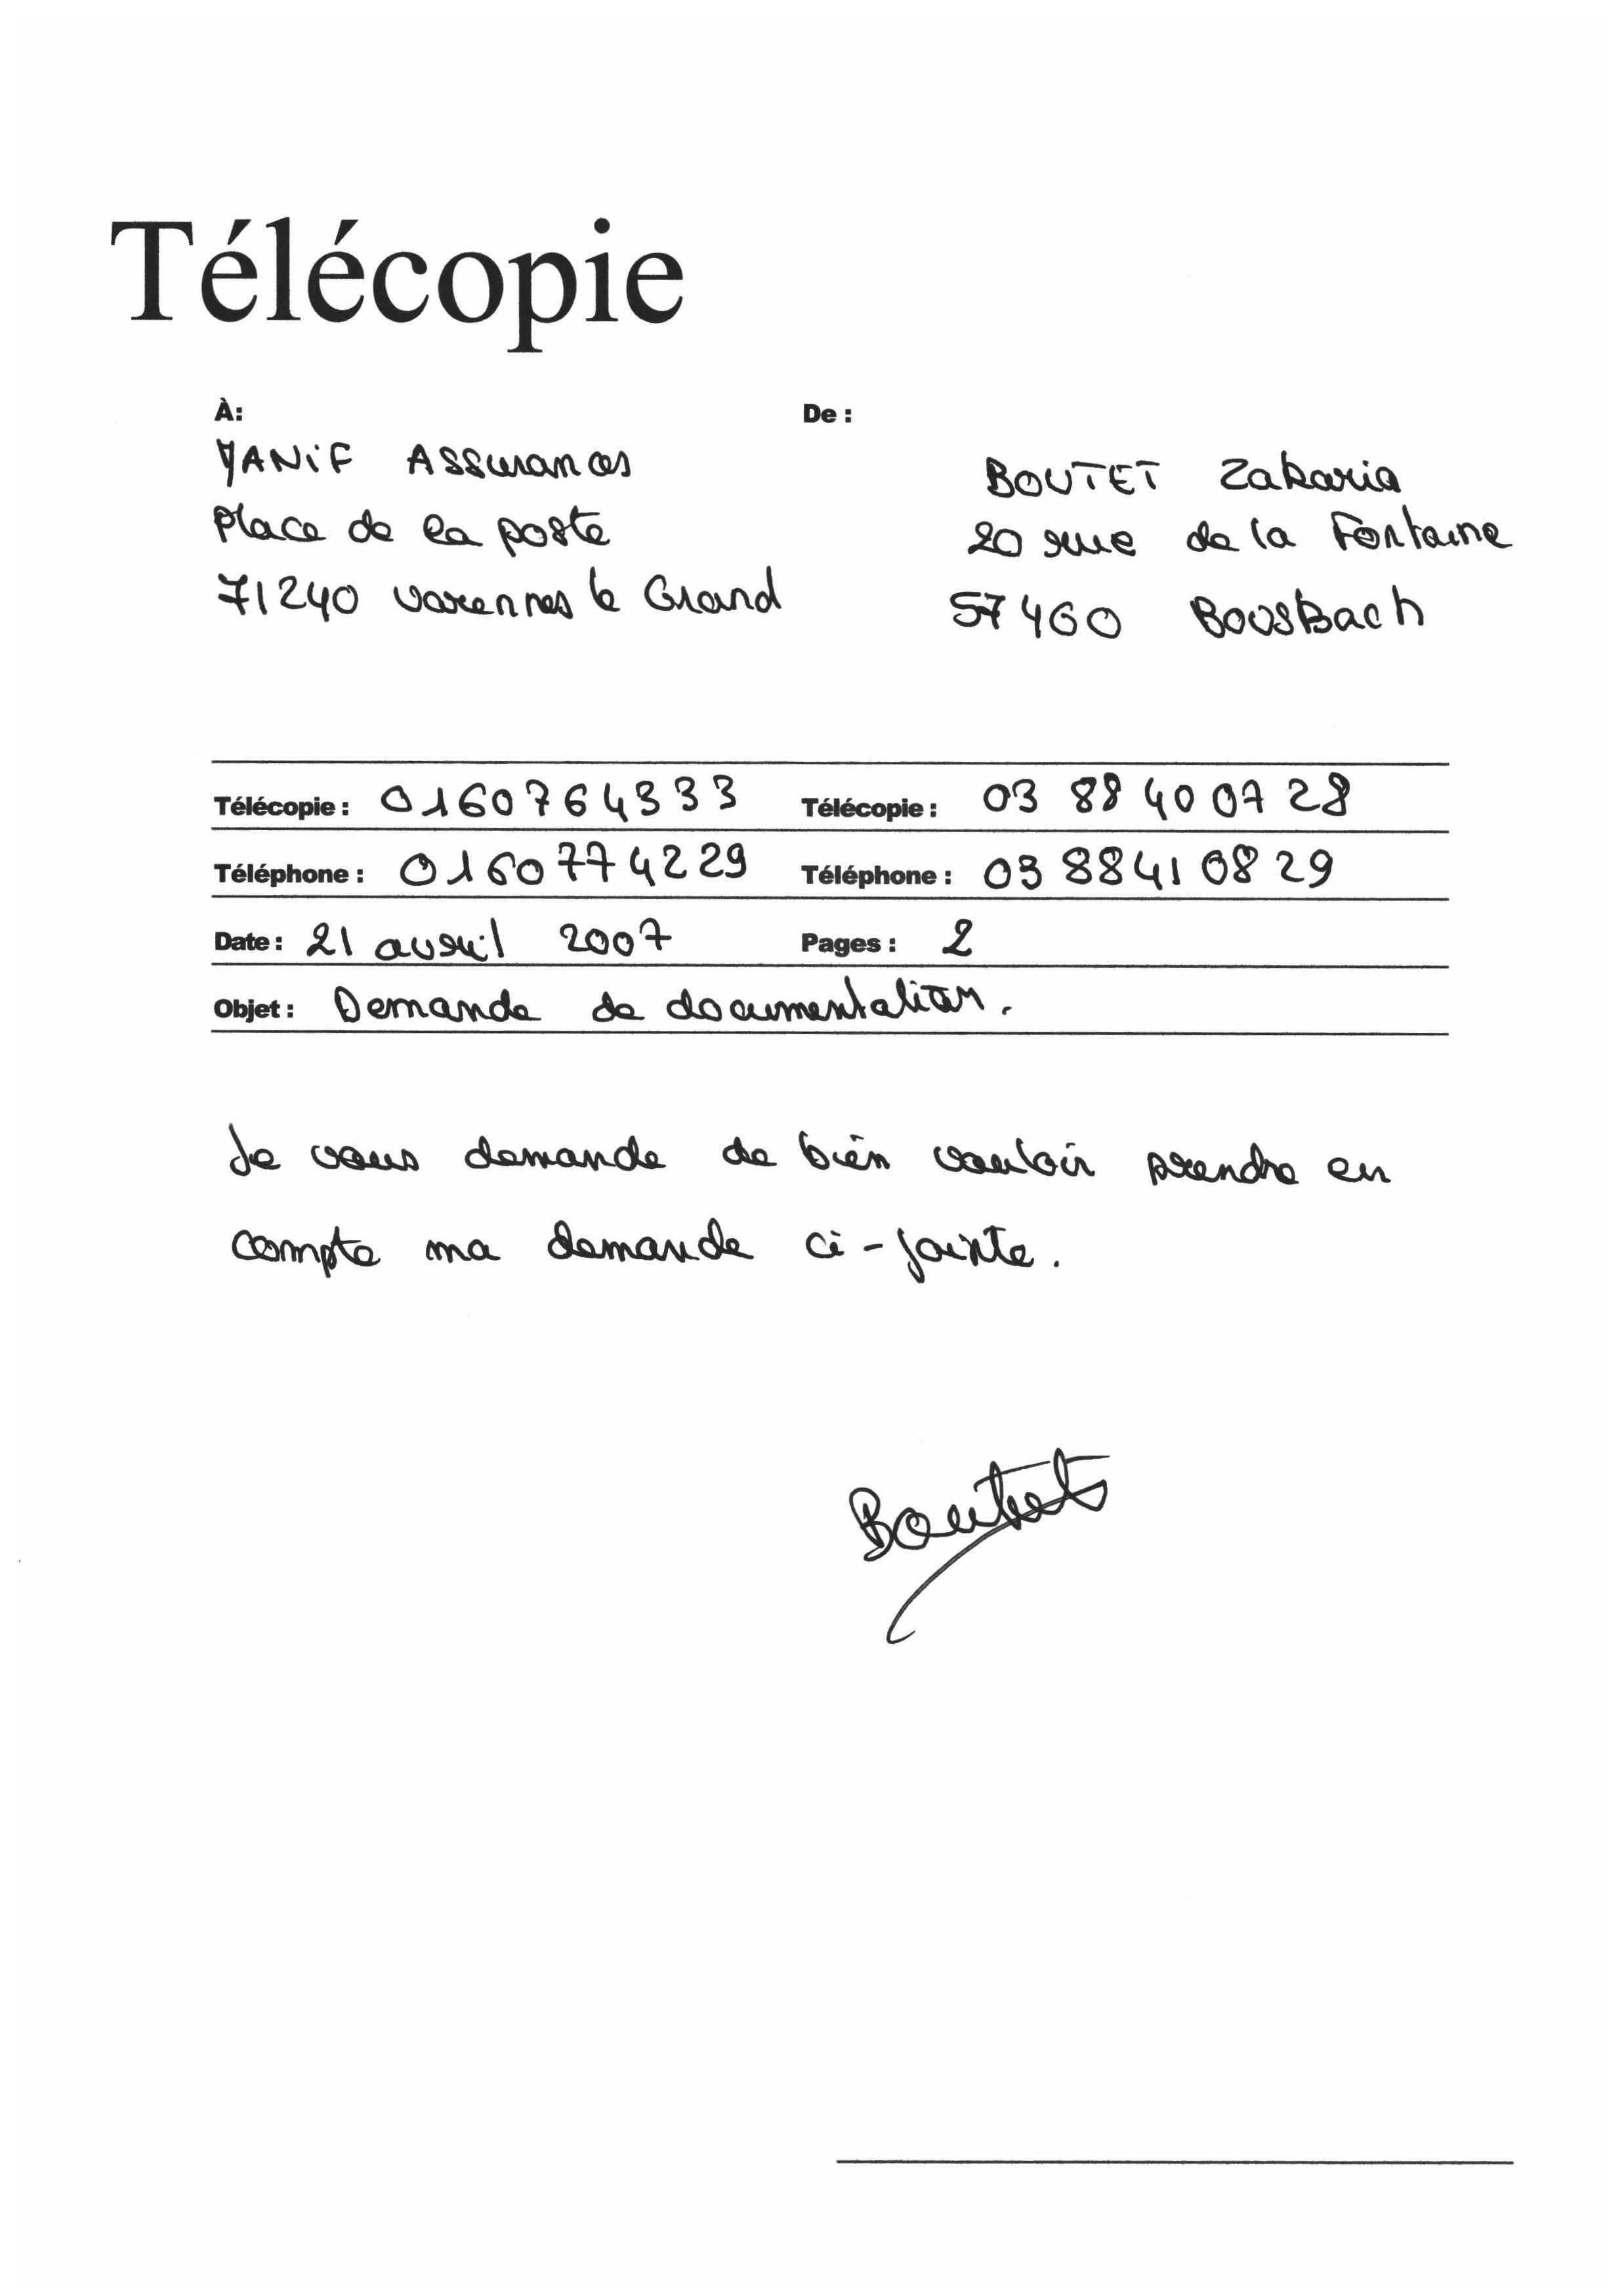 Télécopie
À:
YANIF Assurances
Place de la poste
71240 varennes le Grand
De :
BOUTET Zakaria
20 rue de la Fontaine
57460 BoosBach
Télécopie : 0160764333
Télécopie : 03 88 40 07 28
Téléphone : 0160774229
Téléphone : 03 8841 08 29
Date : 21 avril 2007
Pages : 2
Objet : Demande de documentation.
Je vous demande de bien vouloir prendre en
compte ma demande ci-jointe.
Boutet